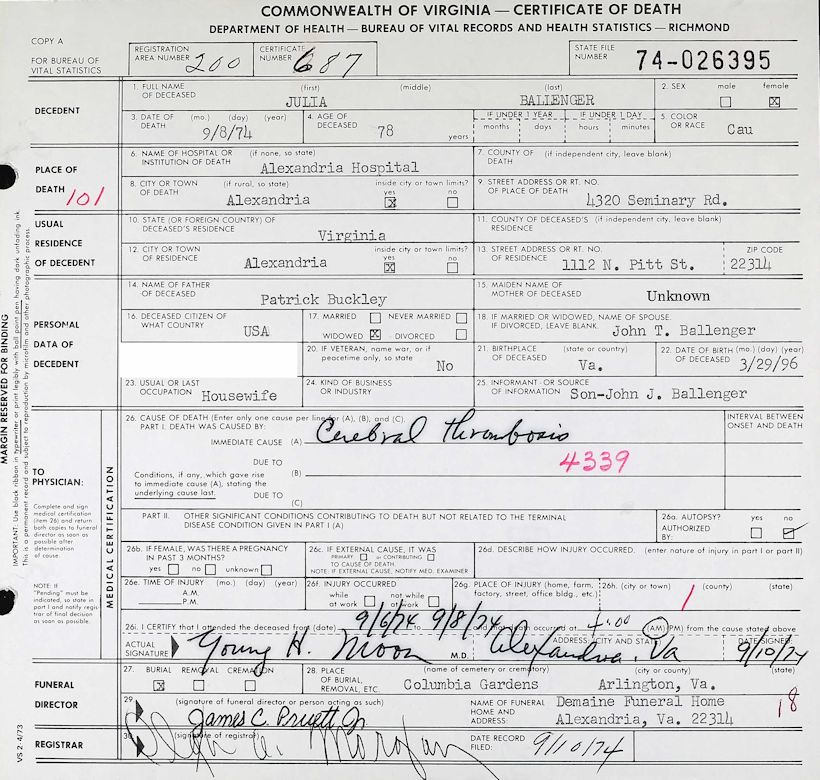 COMMONWEALTH OF VIRGINIA — CERTIFICATE OF DEATH
DEPARTMENT OF HEALTH — BUREAU OF VITAL RECORDS AND HEALTH STATISTICS — RICHMOND
COPY A
FOR BUREAU OF VITAL STATISTICS
REGISTRATION AREA NUMBER 200
CERTIFICATE NUMBER 687
STATE FILE NUMBER 74-026395
MARGIN RESERVED FOR BINDING
IMPORTANT. Use black ribbon in typewriter or print legibly with ball point pen having dark unfading ink.
This is a permanent record and subject to reproduction by microfilm and other photographic process.
DECEDENT
1. FULL NAME OF DECEASED (first) (middle) (last)
JULIA BALLENGER
2. SEX male female ☒
3. DATE OF DEATH (mo.) (day) (year)
9/8/74
4. AGE OF DECEASED 78 years
IF UNDER 1 YEAR months days
IF UNDER 1 DAY hours minutes
5. COLOR OR RACE Cau
PLACE OF DEATH 101
6. NAME OF HOSPITAL OR INSTITUTION OF DEATH (if none, so state)
Alexandria Hospital
7. COUNTY OF DEATH (if independent city, leave blank)
8. CITY OR TOWN OF DEATH (if rural, so state) inside city or town limits? yes ☒ no
Alexandria
9. STREET ADDRESS OR RT. NO. OF PLACE OF DEATH
4320 Seminary Rd.
USUAL RESIDENCE OF DECEDENT
10. STATE (OR FOREIGN COUNTRY) OF DECEASED'S RESIDENCE
Virginia
11. COUNTY OF DECEASED'S RESIDENCE (if independent city, leave blank)
12. CITY OR TOWN OF RESIDENCE inside city or town limits? yes ☒ no
Alexandria
13. STREET ADDRESS OR RT. NO. OF RESIDENCE
1112 N. Pitt St.
ZIP CODE
22314
PERSONAL DATA OF DECEDENT
14. NAME OF FATHER OF DECEASED
Patrick Buckley
15. MAIDEN NAME OF MOTHER OF DECEASED
Unknown
16. DECEASED CITIZEN OF WHAT COUNTRY
USA
17. MARRIED NEVER MARRIED
WIDOWED ☒ DIVORCED
18. IF MARRIED OR WIDOWED, NAME OF SPOUSE. IF DIVORCED, LEAVE BLANK.
John T. Ballenger
20. IF VETERAN, name war, or if peacetime only, so state
No
21. BIRTHPLACE OF DECEASED (state or country)
Va.
22. DATE OF BIRTH (mo.) (day) (year) OF DECEASED
3/29/96
23. USUAL OR LAST OCCUPATION
Housewife
24. KIND OF BUSINESS OR INDUSTRY
25. INFORMANT - OR SOURCE OF INFORMATION
Son-John J. Ballenger
TO PHYSICIAN:
Complete and sign medical certification (item 26) and return both copies to funeral director as soon as possible after determination of cause.
NOTE: IF "Pending" must be indicated, so state in part I and notify registrar of final decision as soon as possible.
MEDICAL CERTIFICATION
26. CAUSE OF DEATH (Enter only one cause per line for (A), (B), and (C).
PART I. DEATH WAS CAUSED BY:
INTERVAL BETWEEN ONSET AND DEATH
IMMEDIATE CAUSE (A) Cerebral thrombosis
4339
Conditions, if any, which gave rise to immediate cause (A), stating the underlying cause last.
DUE TO (B)
DUE TO (C)
PART II. OTHER SIGNIFICANT CONDITIONS CONTRIBUTING TO DEATH BUT NOT RELATED TO THE TERMINAL DISEASE CONDITION GIVEN IN PART I (A)
26a. AUTOPSY? AUTHORIZED BY: yes no ☑
26b. IF FEMALE, WAS THERE A PREGNANCY IN PAST 3 MONTHS?
yes no unknown
26c. IF EXTERNAL CAUSE, IT WAS
PRIMARY or CONTRIBUTING
TO CAUSE OF DEATH.
NOTE: IF EXTERNAL CAUSE, NOTIFY MED. EXAMINER
26d. DESCRIBE HOW INJURY OCCURRED. (enter nature of injury in part I or part II)
26e. TIME OF INJURY (mo.) (day) (year)
A.M.
P.M.
26f. INJURY OCCURRED
while at work not while at work
26g. PLACE OF INJURY (home, farm, factory, street, office bldg., etc.)
26h. (city or town) (county) (state)
26i. I CERTIFY that I attended the deceased from (date) 9/6/74 to 9/8/74 and death occurred at (AM) (PM) from the cause stated above
ACTUAL SIGNATURE Young H. Moon M.D.
ADDRESS (CITY AND STATE) Alexandria, Va
DATE SIGNED 9/10/74
FUNERAL DIRECTOR
27. BURIAL REMOVAL CREMATION
☒
28. PLACE OF BURIAL, REMOVAL, ETC. (name of cemetery or crematory) (city or county) (state)
Columbia Gardens Arlington, Va.
29. (signature of funeral director or person acting as such)
James C. Pruett Jr
NAME OF FUNERAL HOME AND ADDRESS:
Demaine Funeral Home
Alexandria, Va. 22314
18
REGISTRAR
30. (signature of registrar)
DATE RECORD FILED: 9/10/74
VS 2-4/73